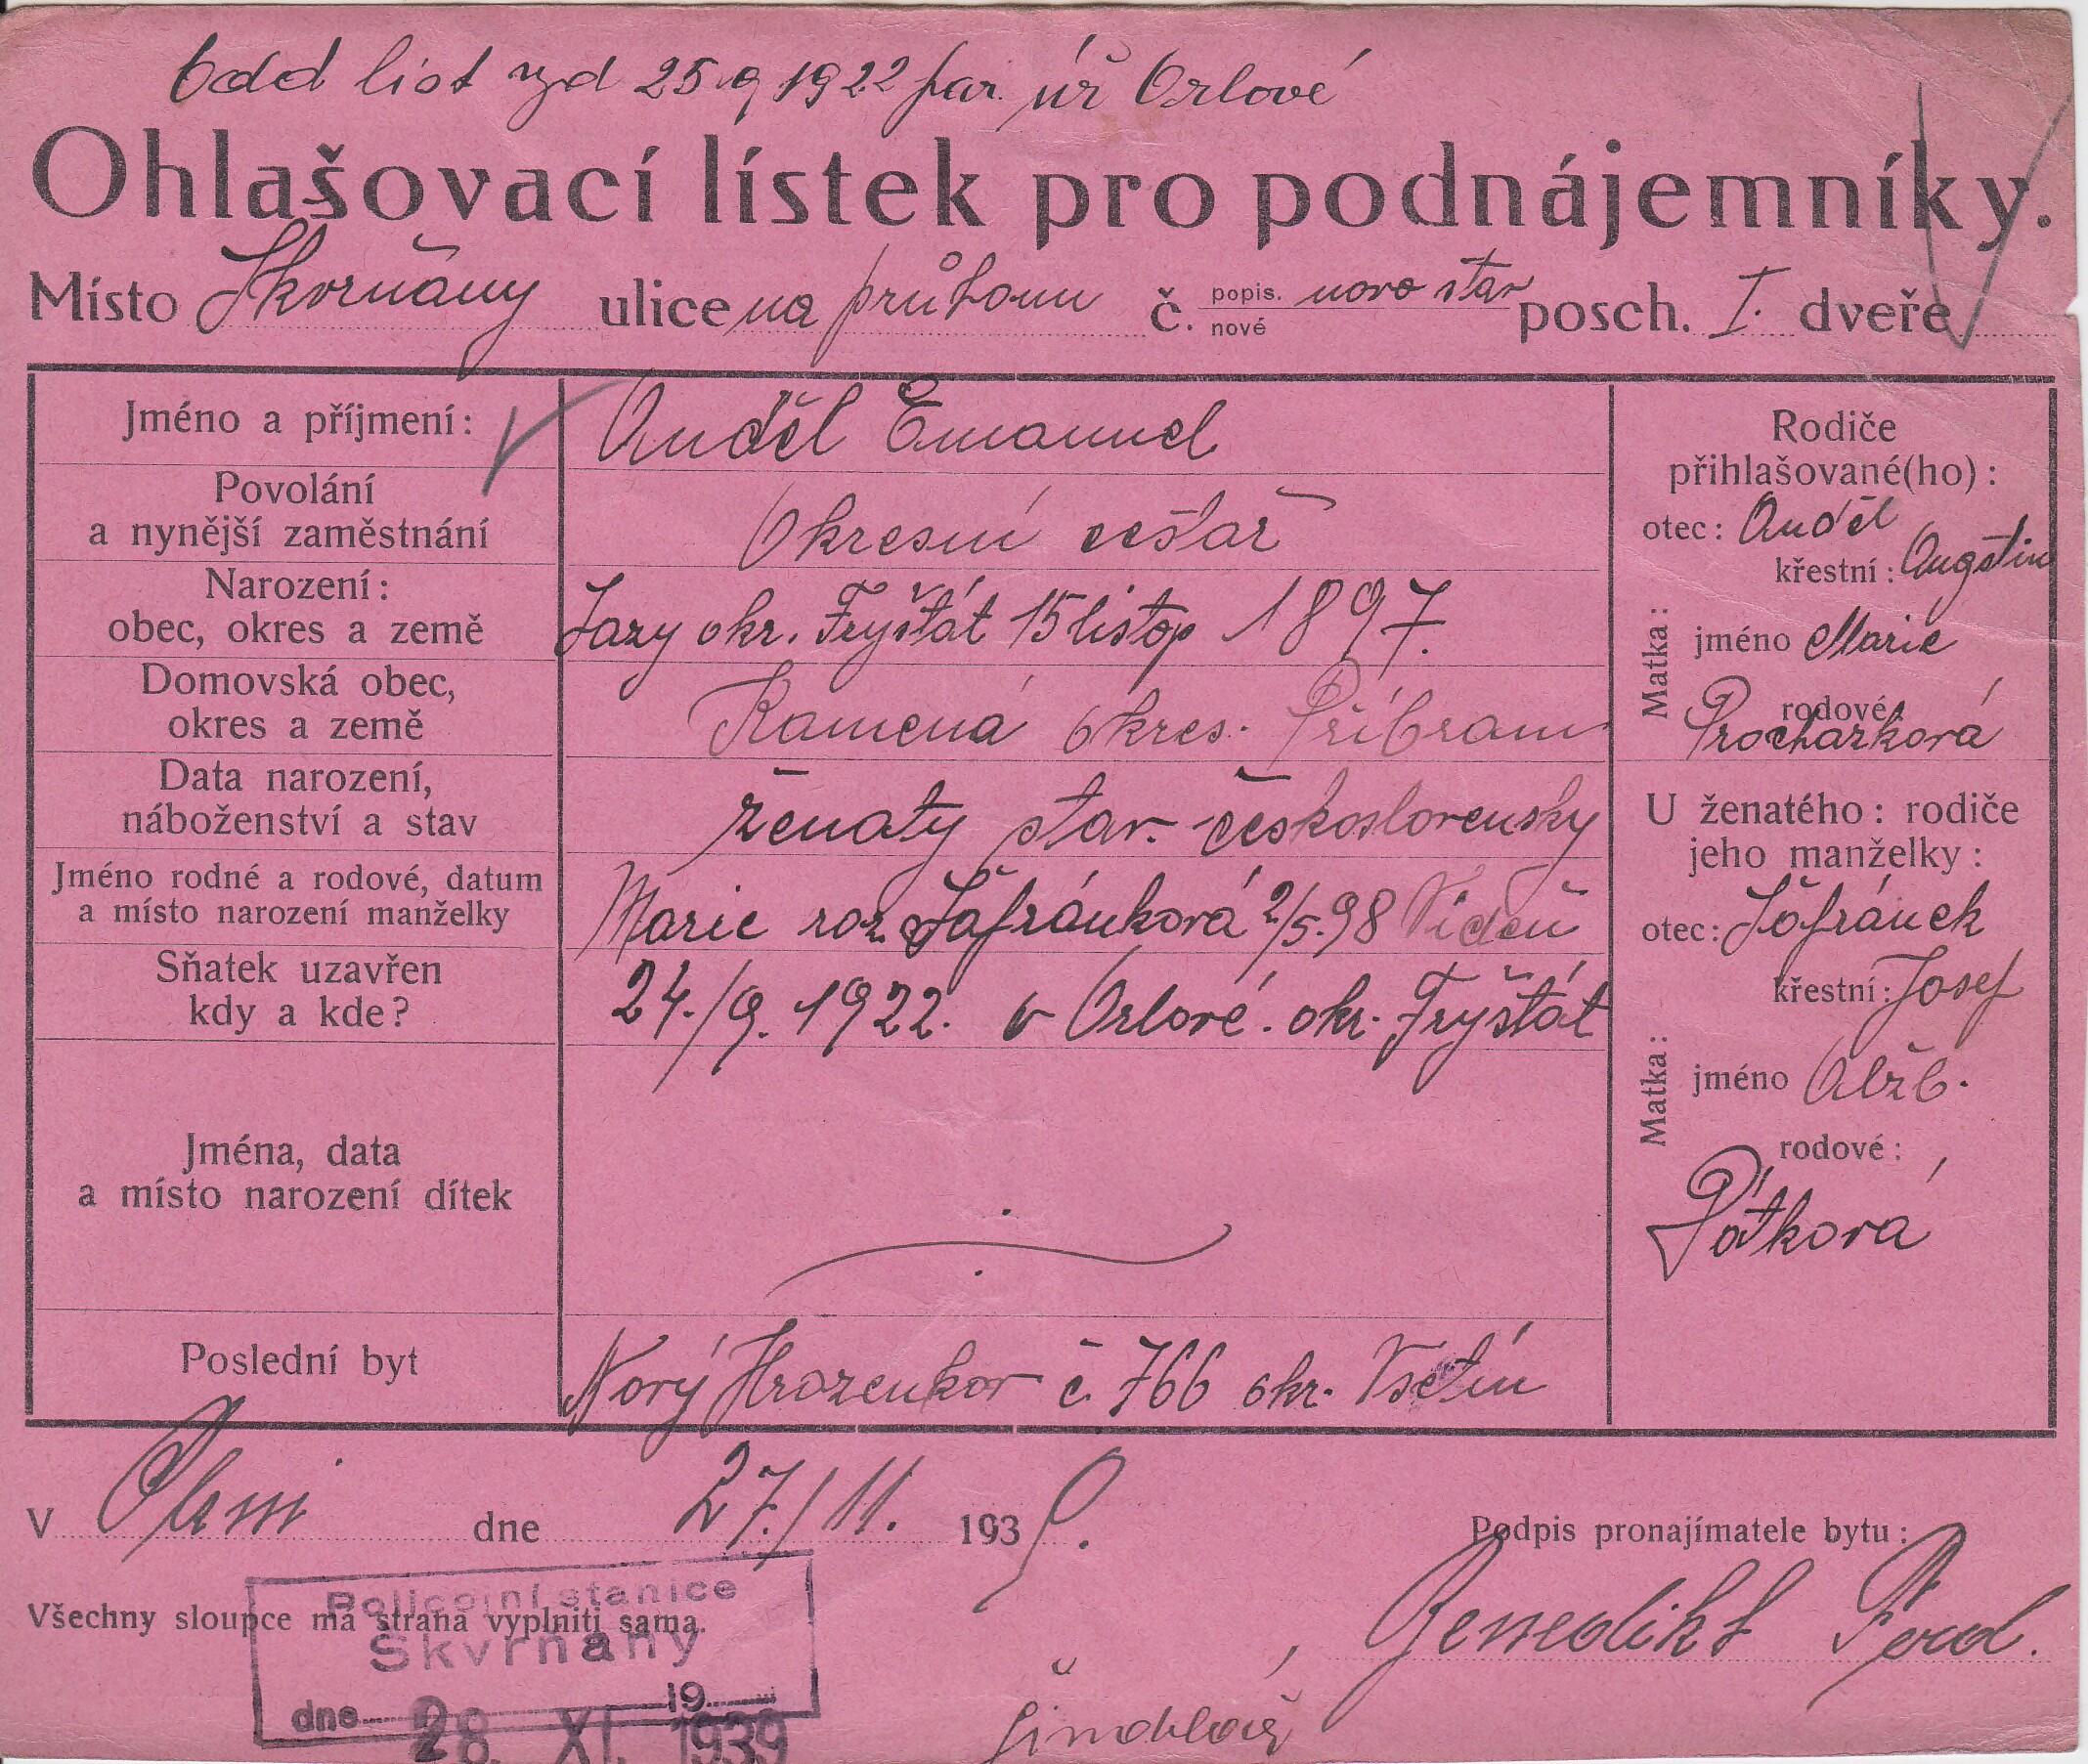 Odd list vyd 25.9 1922 far. úř Orlové
Ohlašovací lístek pro podnájemníky.
Místo Skvrňany ulice na průhonu č. popis. novo stav posch. I. dveře
nové
Jméno a příjmení: Anděl Emanuel
Povolání
a nynější zaměstnání
Okresní cestář
Narození:
obec, okres a země
Lazy okr. Fryštát 15 listop 1897.
Domovská obec,
okres a země
Kamená okres. Příbram
Data narození,
náboženství a stav
ženatý stav. československy
Jméno rodné a rodové, datum
a místo narození manželky
Marie roz. Šafránková 2/5.98 Vídeň
Sňatek uzavřen
kdy a kde?
24./9. 1922. v Orlové. okr. Fryštát
Jména, data
a místo narození dítek
Poslední byt
Nový Hrozenkov č. 766 okr. Vsetín
Rodiče
přihlašované(ho):
otec: Anděl
křestní: Augstin
Matka: jméno Marie
rodové:
Procházková
U ženatého: rodiče
jeho manželky:
otec: Šafránek
křestní: Josef
Matka: jméno Alžb.
rodové:
Pátková
V Plzni dne 27./11. 1939.
Podpis pronajímatele bytu:
Všechny sloupce má strana vyplniti sama.
Benedikt Ferd.
Policejní stanice
Skvrňany
dne 19
28. XI. 1939